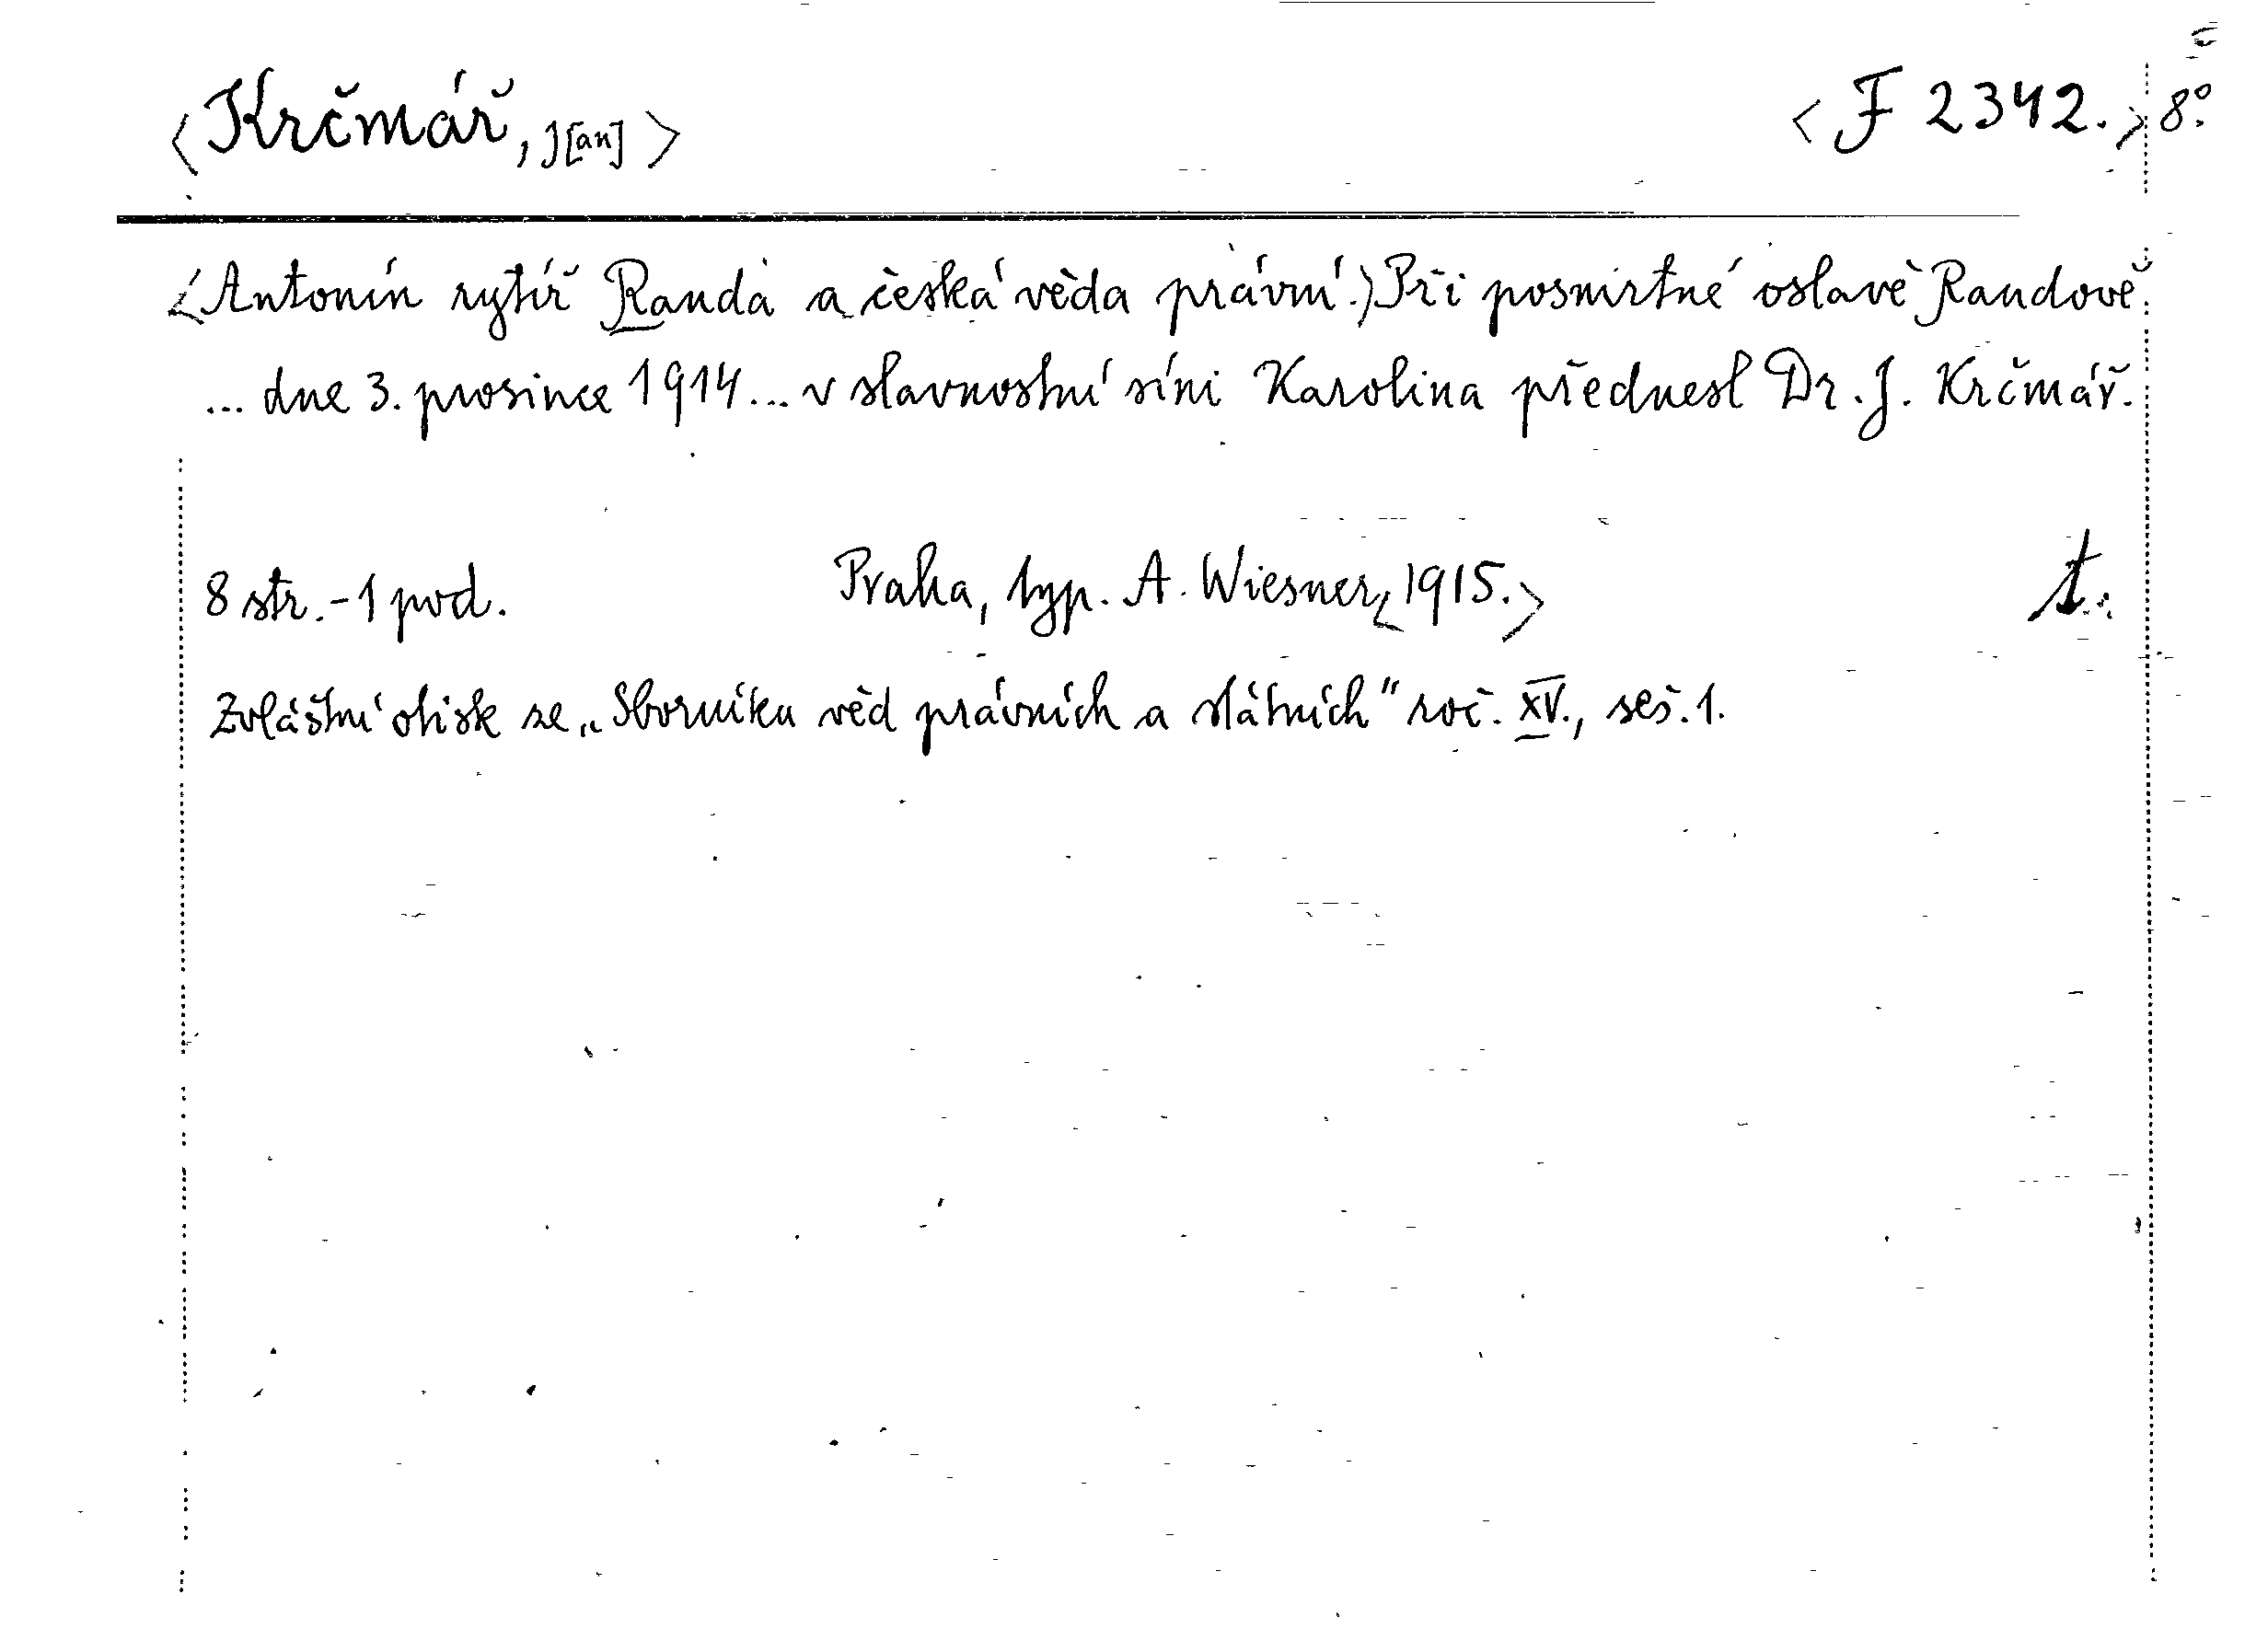 <Krčmář, J[an]> <F 2342.> 8º.
<Antonín rytíř Randa a česká věda právní.> Při posmrtné oslavě Randově
... dne 3. prosince 1914 ... v slavnostní síni Karolina přednesl Dr. J. Krčmář.
8 str. - 1 pod. Praha, typ. A. Wiesner, <1915.> t.
Zvláštní otisk ze „Sborníku věd právních a státních" roč. XV., seš. 1.